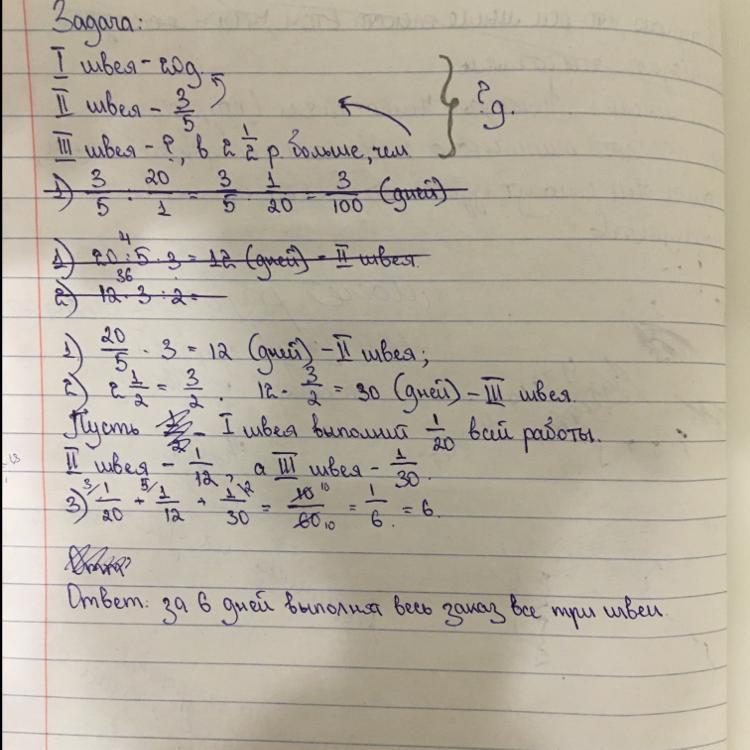 Задача:
I швея - 20д.
II швея - 3/5
III швея - ?, в 2 1/2 р. больше, чем
? д.
1) 3/5 : 20/1 = 3/5 · 1/20 = 3/100 (дней)
1) 20 : 5 · 3 = 12 (дней) - II швея.
2) 12 · 3 : 2 =
1) 20/5 · 3 = 12 (дней) - II швея;
2) 2 1/2 = 3/2. 12 · 3/2 = 30 (дней) - III швея.
Пусть - I швея выполний 1/20 всей работы.
II швея - 1/12, а III швея - 1/30.
3) 1/20 + 1/12 + 1/30 = 10/60 = 1/6 = 6.
Ответ: за 6 дней выполня весь заказ все три швеи.